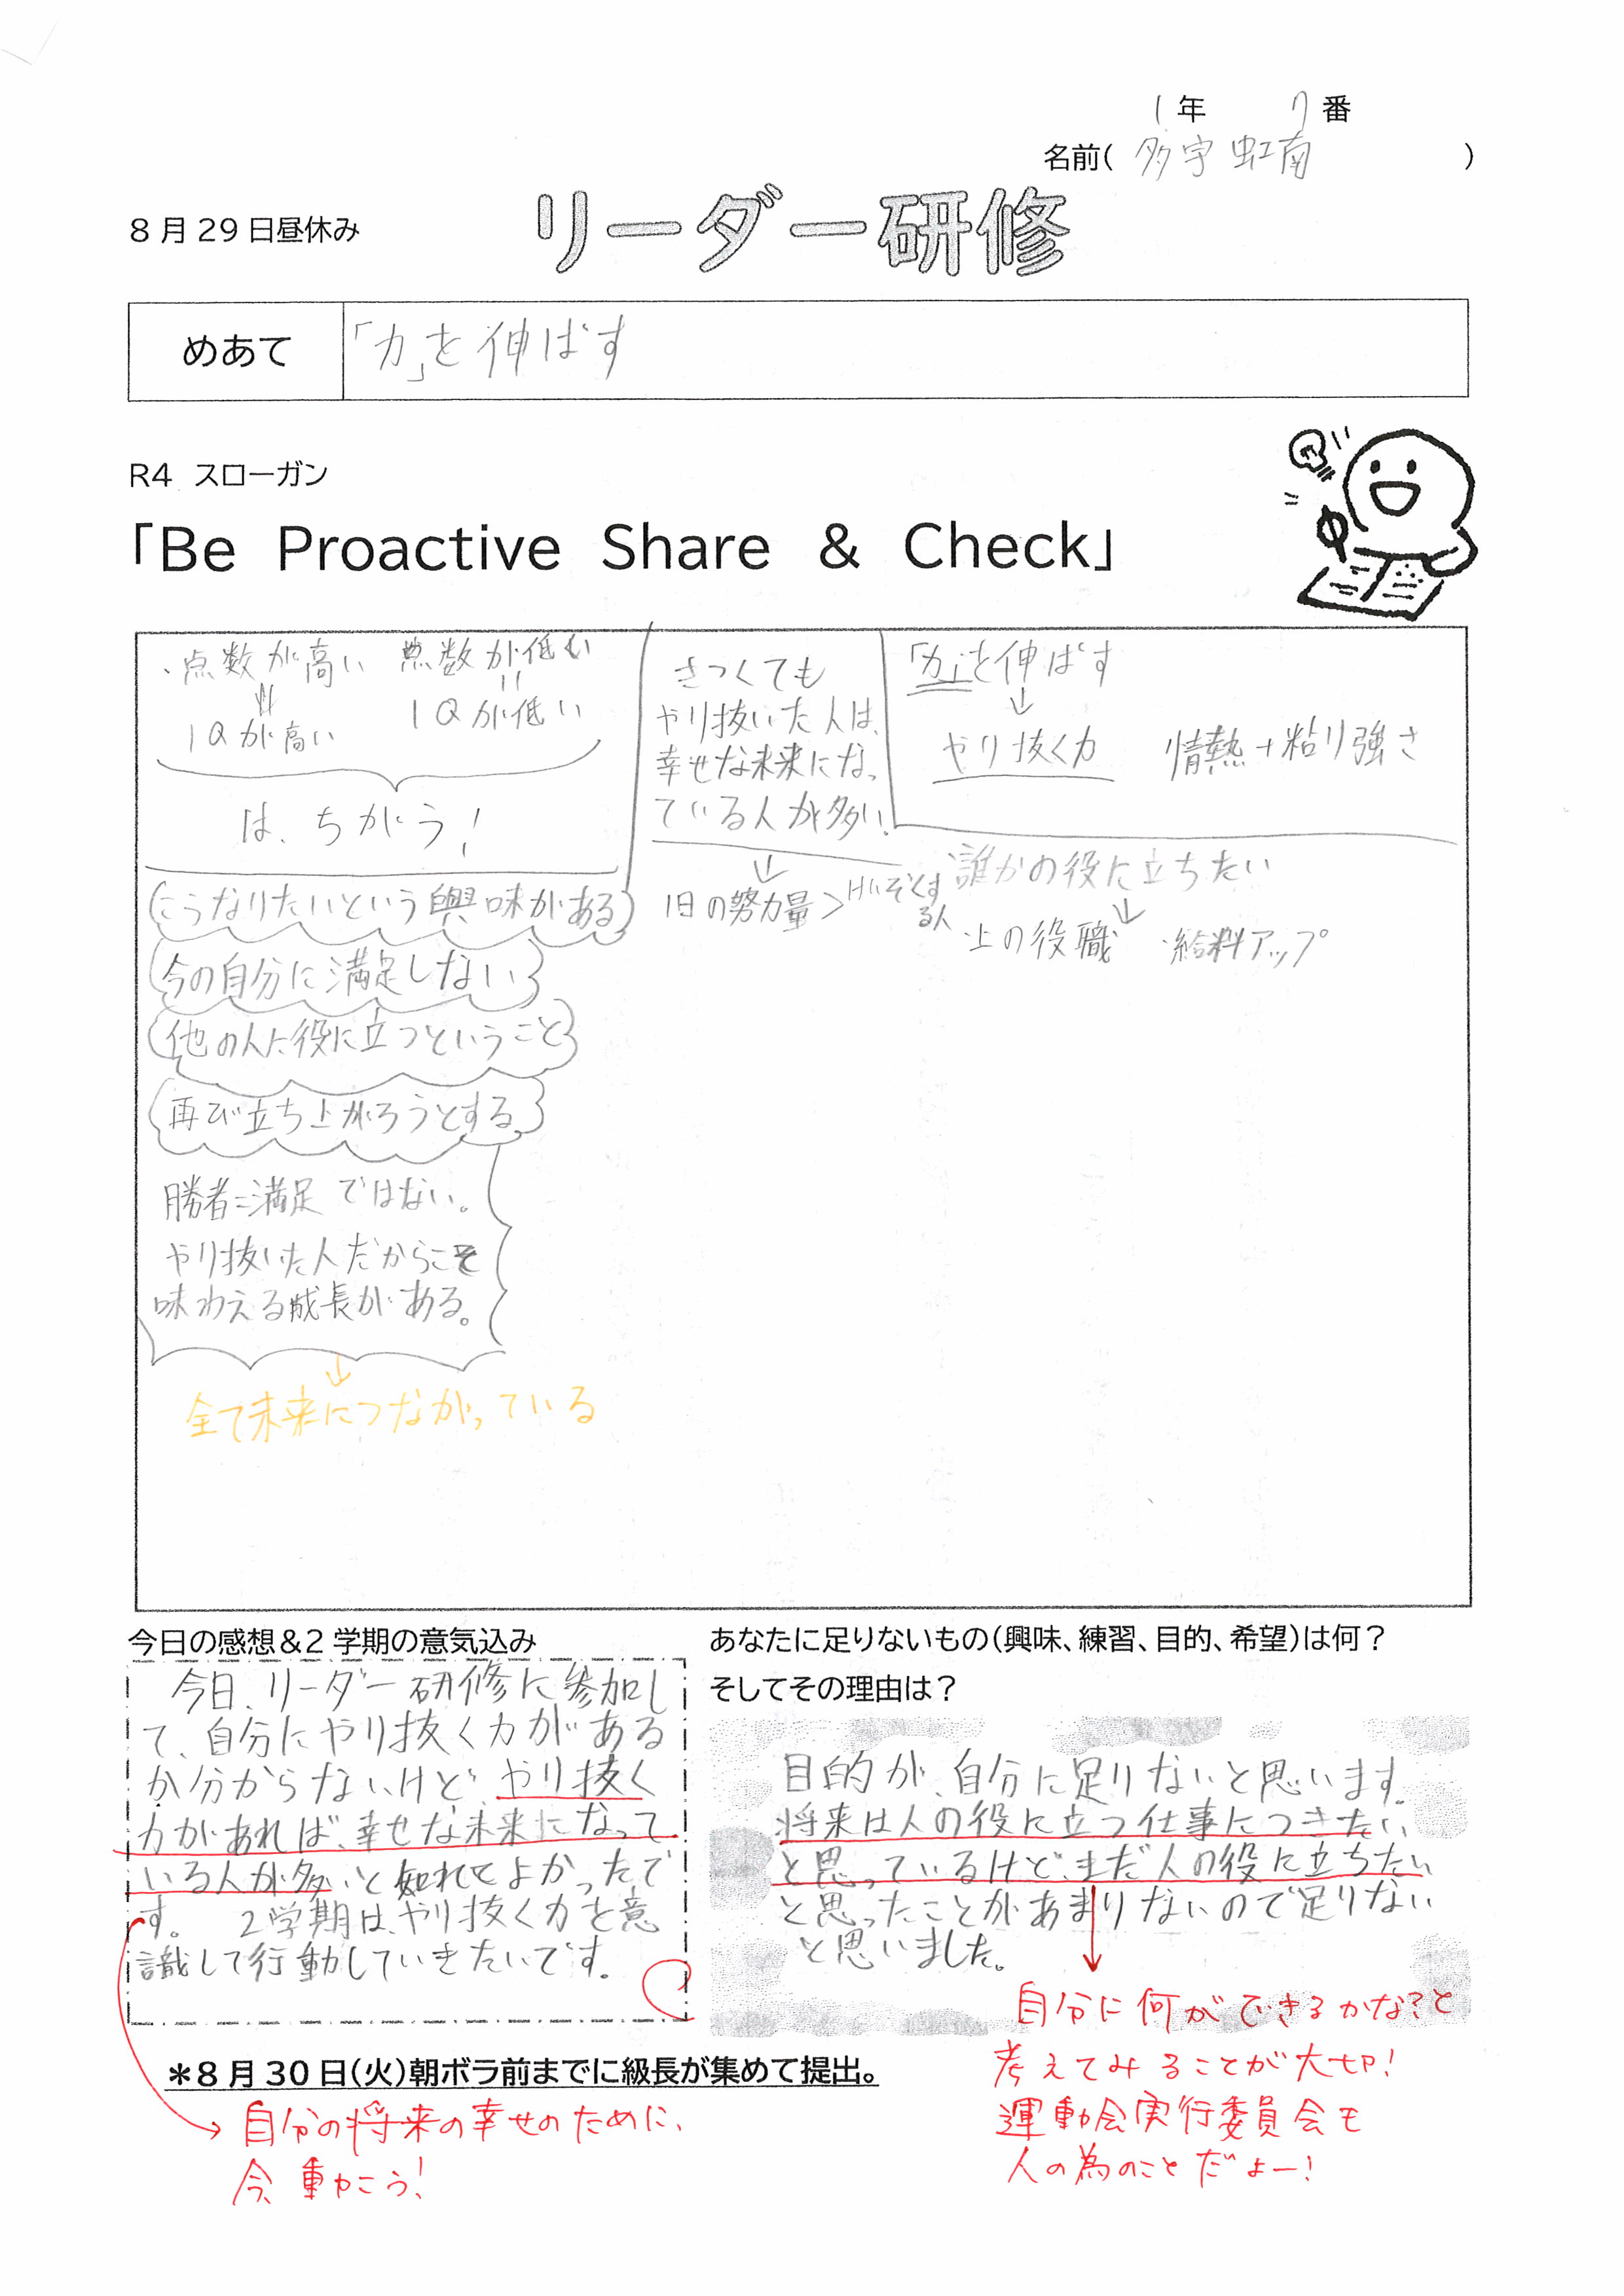 1年 7番
名前( 多宇 虹南 )
8月29日昼休み
リーダー研修
めあて
「力」を伸ばす
R4 スローガン
「Be Proactive Share & Check」
・点数が高い 点数が低い
〃 〃
IQが高い IQが低い
は、ちがう!
きつくても
やり抜いた人は、
幸せな未来にな
っている人が多い。
↓
1日の努力量>けいぞくす
る人
「力」を伸ばす
↓
やり抜く力 情熱+粘り強さ
・誰かの役に立ちたい
↓
・上の役職 ・給料アップ
こうなりたいという興味がある
今の自分に満足しない
他の人に役に立つということ
再び立ち上がろうとする
勝者=満足ではない。
やり抜いた人だからこそ
味わえる成長がある。
↓
全て未来につながっている
今日の感想&2学期の意気込み
今日、リーダー研修に参加し
て、自分にやり抜く力がある
か分からないけど、やり抜く
力があれば、幸せな未来になって
いる人が多いと知れてよかったで
す。 2学期は、やり抜く力を意
識して行動していきたいです。
あなたに足りないもの(興味、練習、目的、希望)は何?
そしてその理由は?
目的が、自分に足りないと思います。
将来は人の役に立つ仕事につきたい
と思っているけど、まだ人の役に立ちたい
と思ったことがあまりないので足りない
と思いました。
自分に何ができるかな?と
考えてみることが大切!
運動会実行委員会も
人の為のことだよー!
*8月30日(火)朝ボラ前までに級長が集めて提出。
→自分の将来の幸せのために、
今、動かこう!